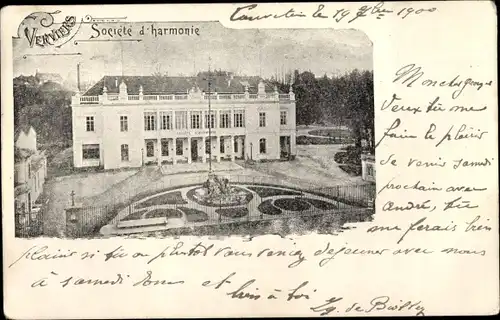 Verviers
Société d'harmonie
le 19 7bre 1900
Mon cher
Veux tu me
faire le plaisir
de venir samedi
prochain avec
André, tu
me ferais bien
plaisir si tu ou plutôt vous veniez déjeuner avec nous
à samedi donc et
bien à toi
de